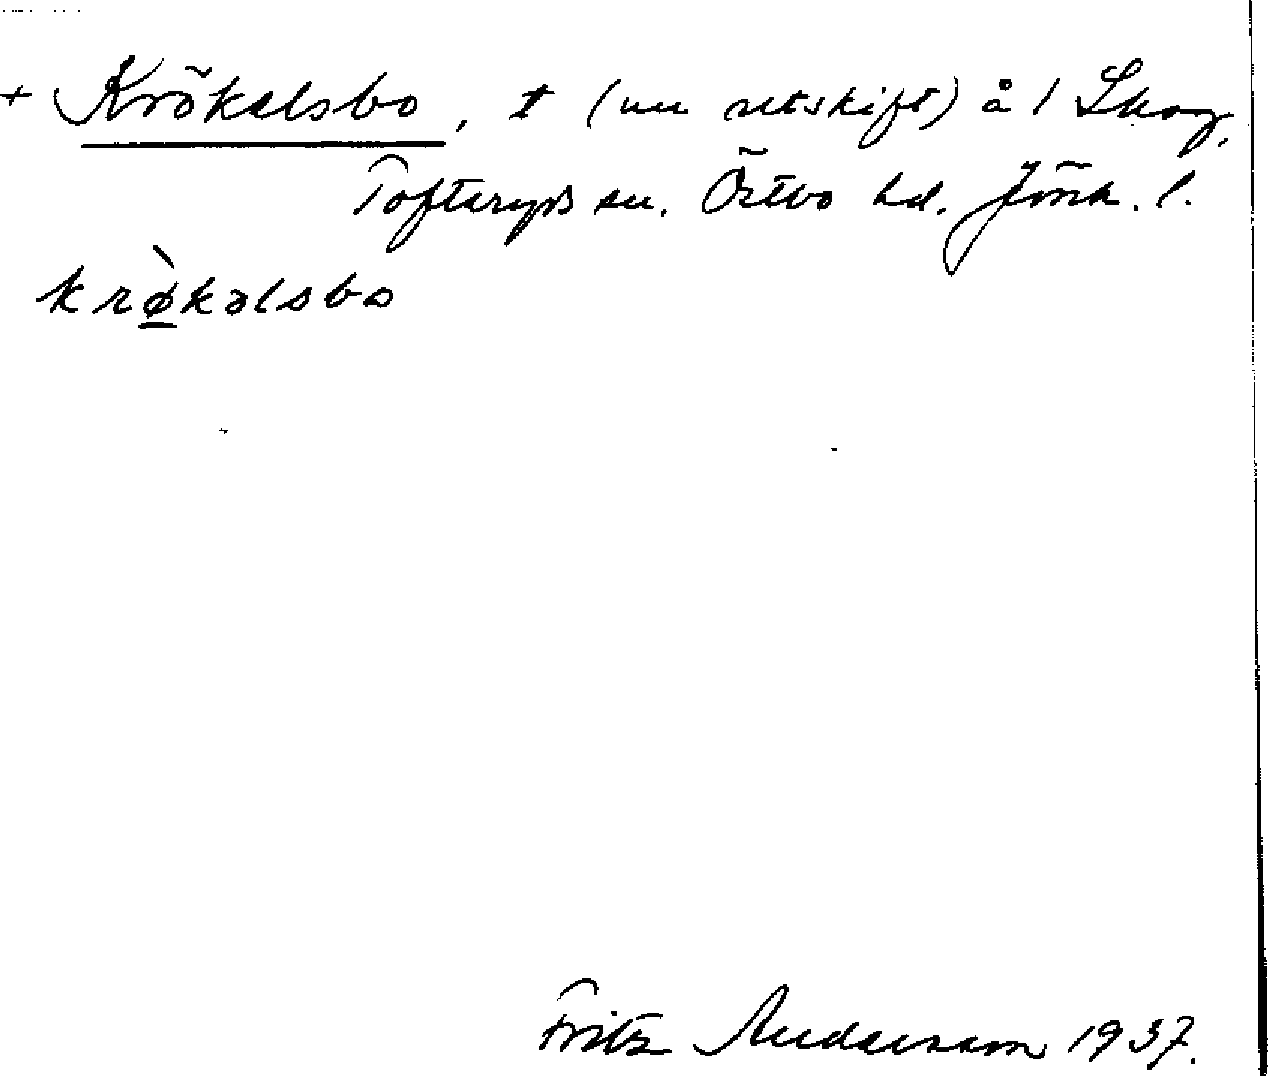 + Krökelsbo, t (nu utskift) å 1 Skog,
Tofteryds sn. Östbo hd. Jönk. l.
krø̀kəlsbo
Fritz Anderson 1937.